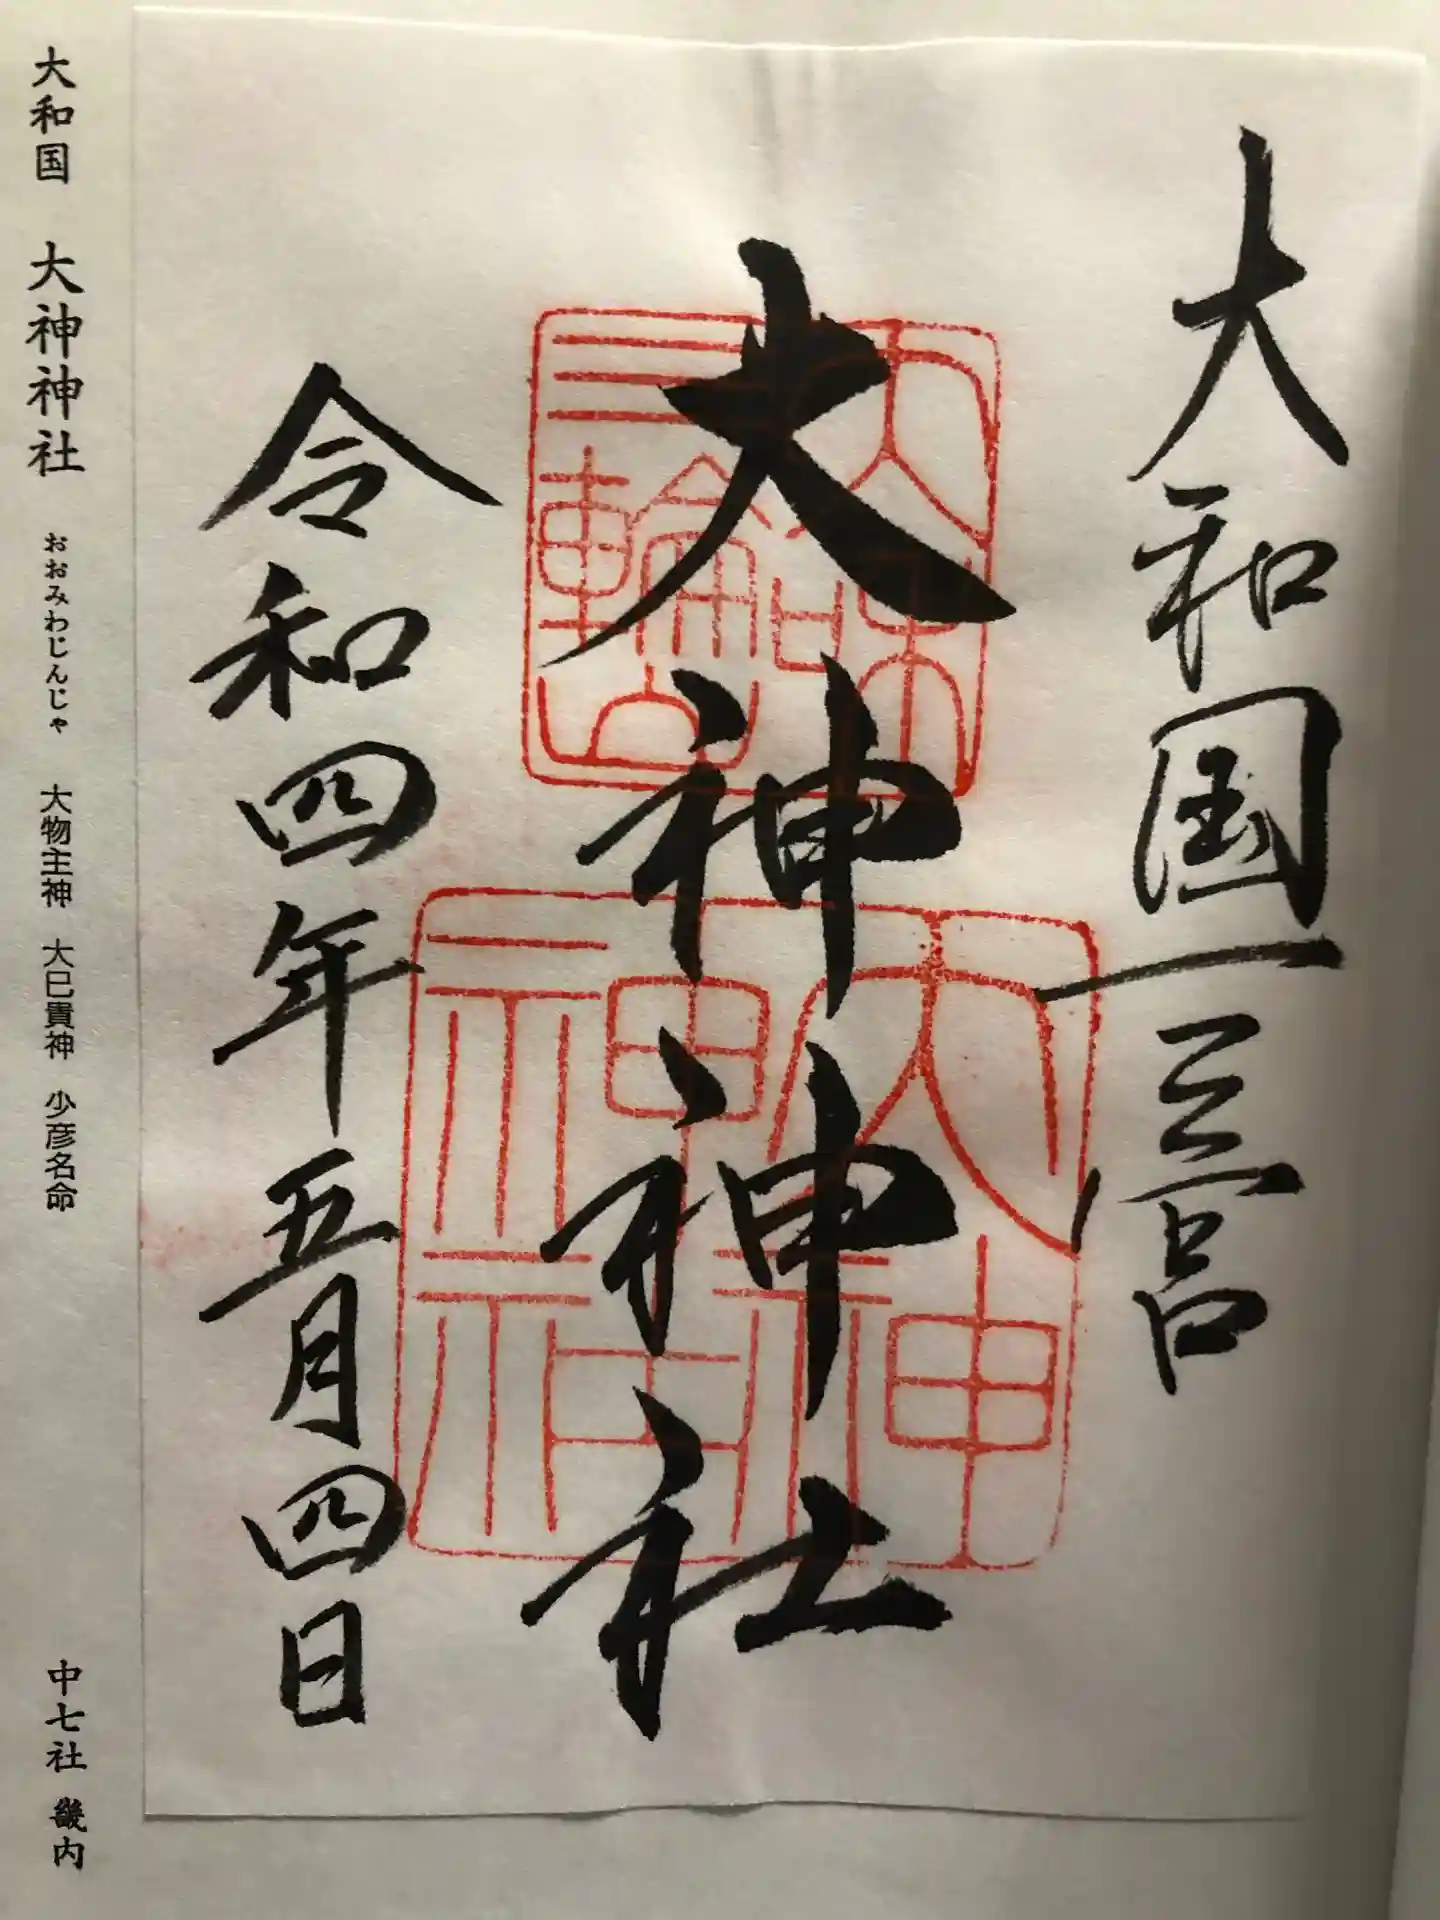 大和国一之宮
大神神社
令和四年五月四日
大和三輪山
大神神社
大和国 大神神社 おおみわじんじゃ 大物主神 大巳貴神 少彦名命 中七社 畿内